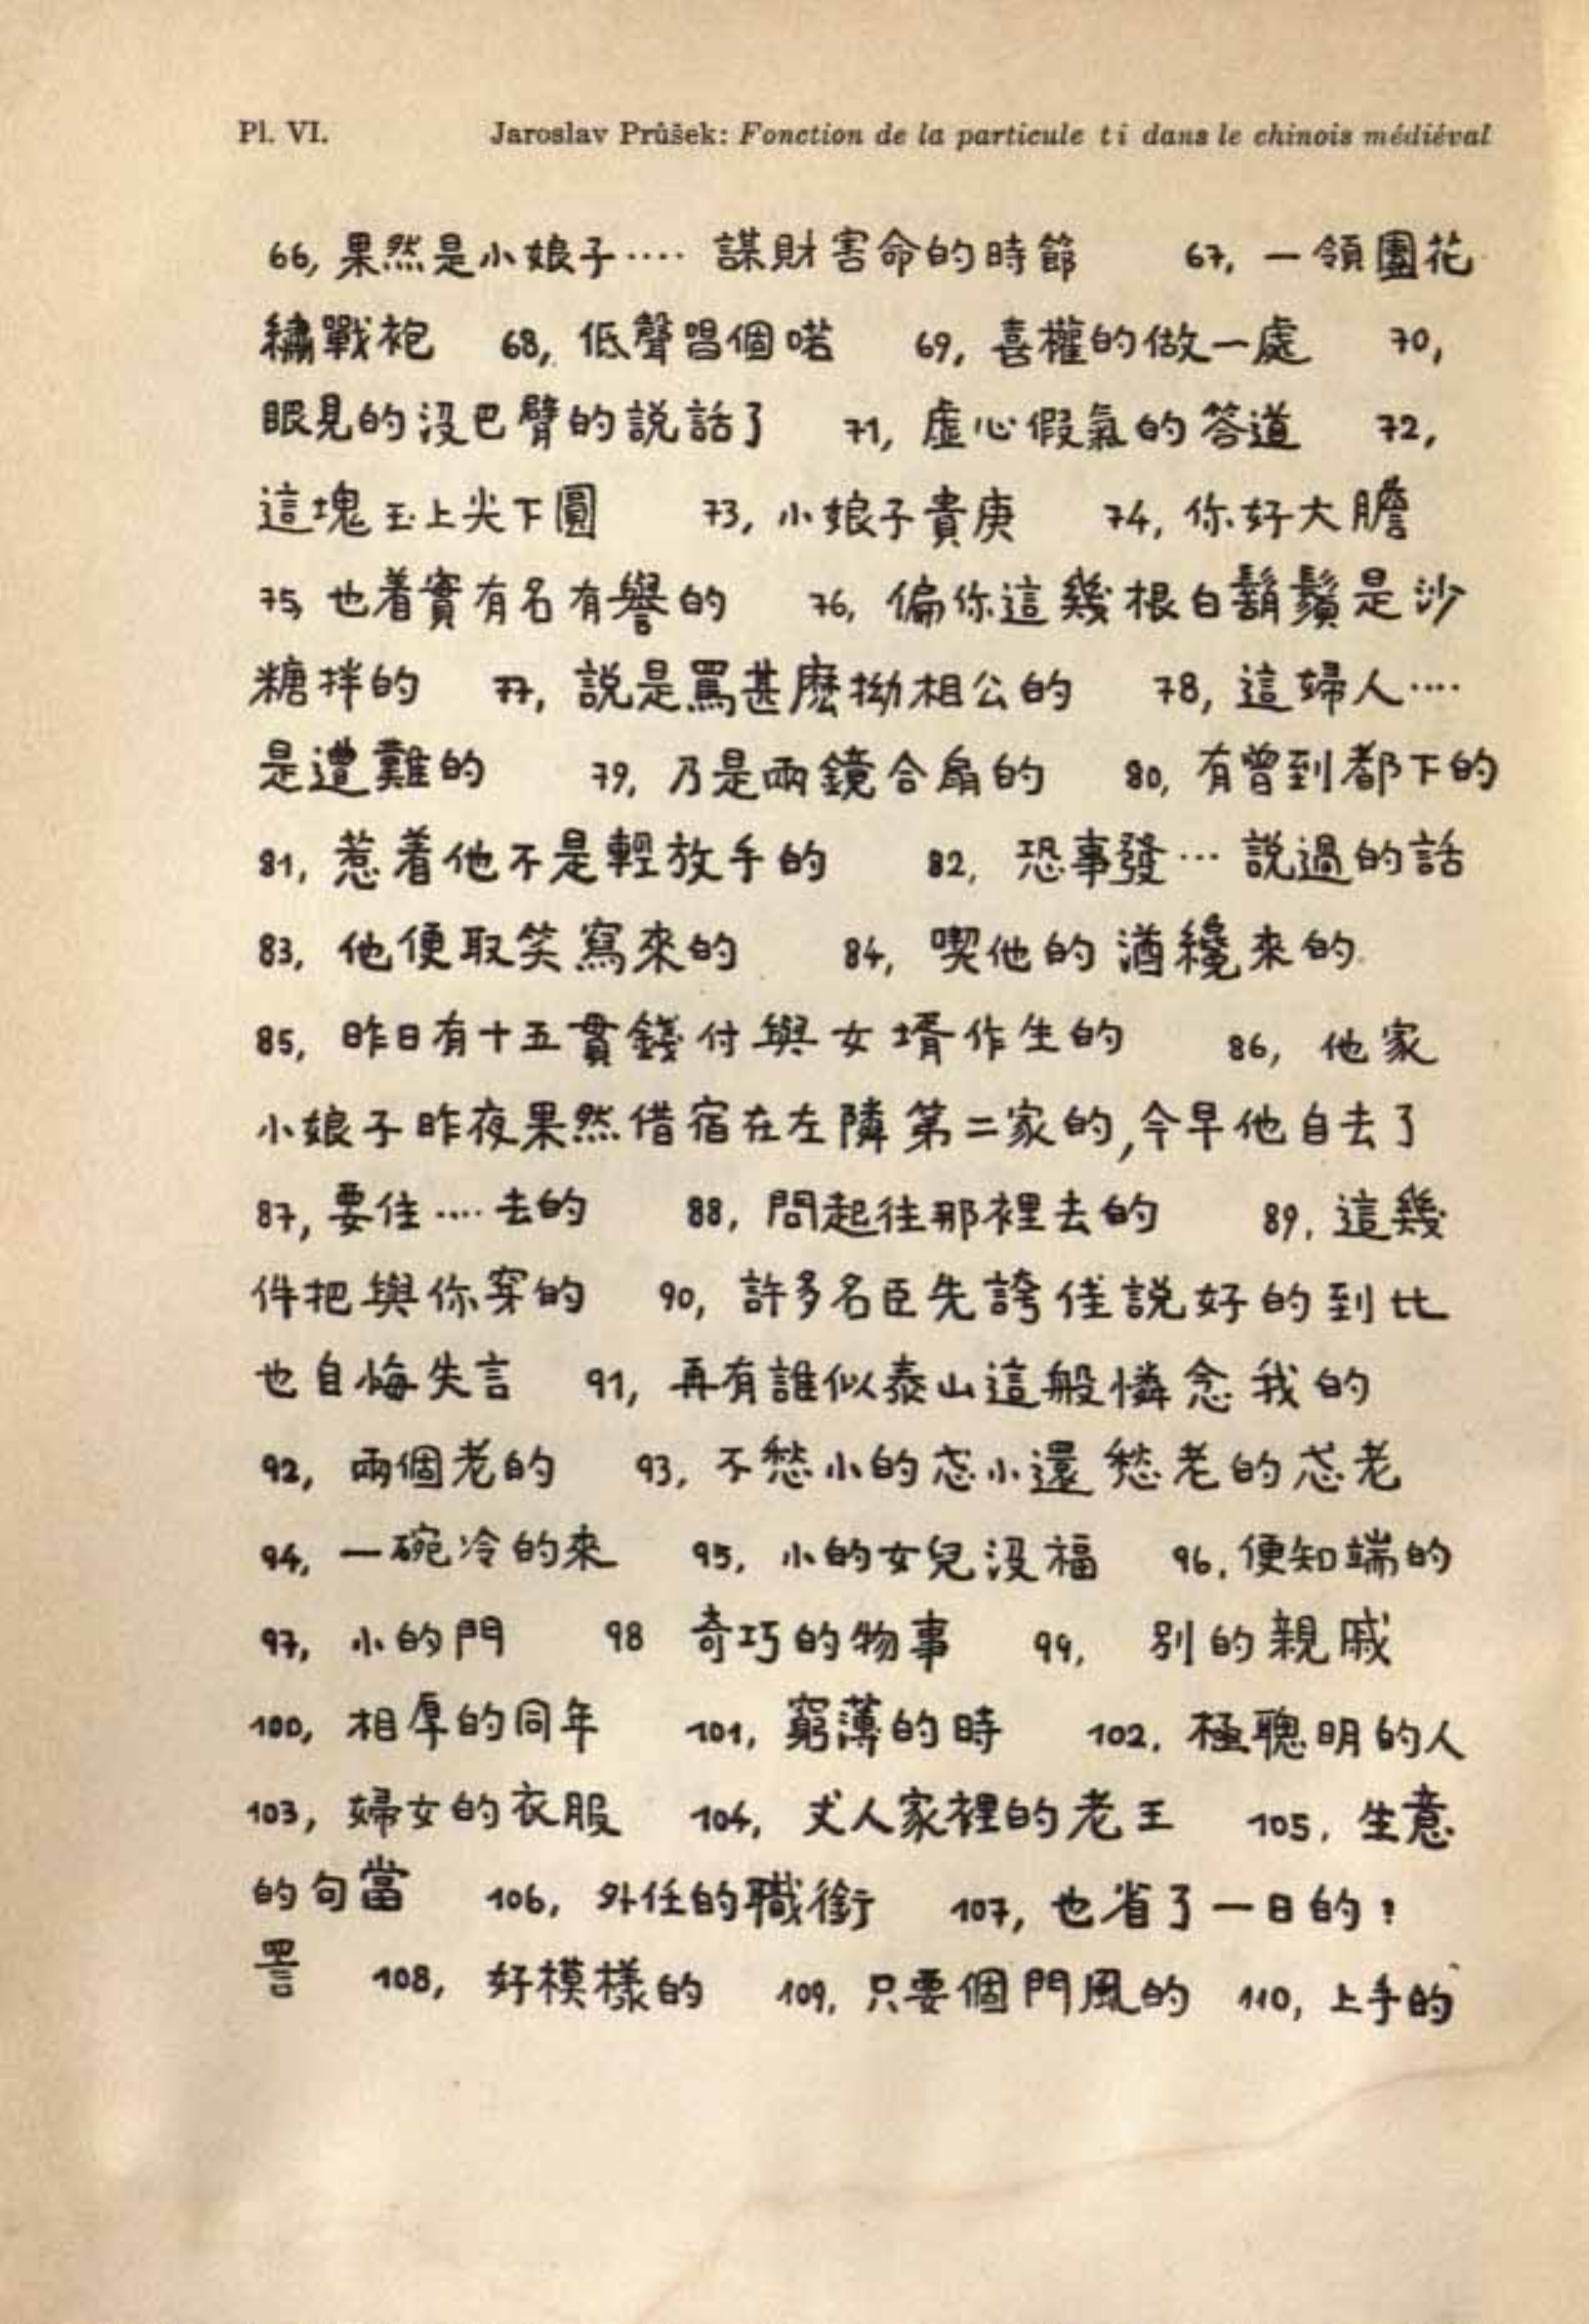 Pl. VI. Jaroslav Průšek: Fonction de la particule ti dans le chinois médiéval
66, 果然是小娘子···· 謀財害命的時節 67, 一領團花
繡戰袍 68, 低聲唱個喏 69, 喜權的做一處 70,
眼見的沒巴臂的説話了 71, 虛心假氣的答道 72,
這塊玉上尖下圓 73, 小娘子貴庚 74, 你好大膽
75, 也着實有名有譽的 76, 偏你這幾根白鬍鬚是沙
糖拌的 77, 説是罵甚麽拗相公的 78, 這婦人····
是遭難的 79, 乃是兩鏡合扇的 80, 有曾到都下的
81, 惹着他不是輕放手的 82, 恐事發··· 説過的話
83, 他便取笑寫來的 84, 喫他的酒纔來的
85, 昨日有十五貫錢付與女壻作生的 86, 他家
小娘子昨夜果然借宿在左隣第二家的,今早他自去了
87, 要住····去的 88, 問起往那裡去的 89, 這幾
件把與你穿的 90, 許多名臣先誇佳説好的到比
也自悔失言 91, 再有誰似泰山這般憐念我的
92, 兩個老的 93, 不愁小的忒小還愁老的忒老
94, 一碗冷的來 95, 小的女兒沒福 96, 便知端的
97, 小的門 98 奇巧的物事 99, 別的親戚
100, 相厚的同年 101, 窮薄的時 102, 極聰明的人
103, 婦女的衣服 104, 丈人家裡的老王 105, 生意
的句當 106, 外任的職銜 107, 也省了一日的?
詈 108, 好模樣的 109, 只要個門風的 110, 上手的